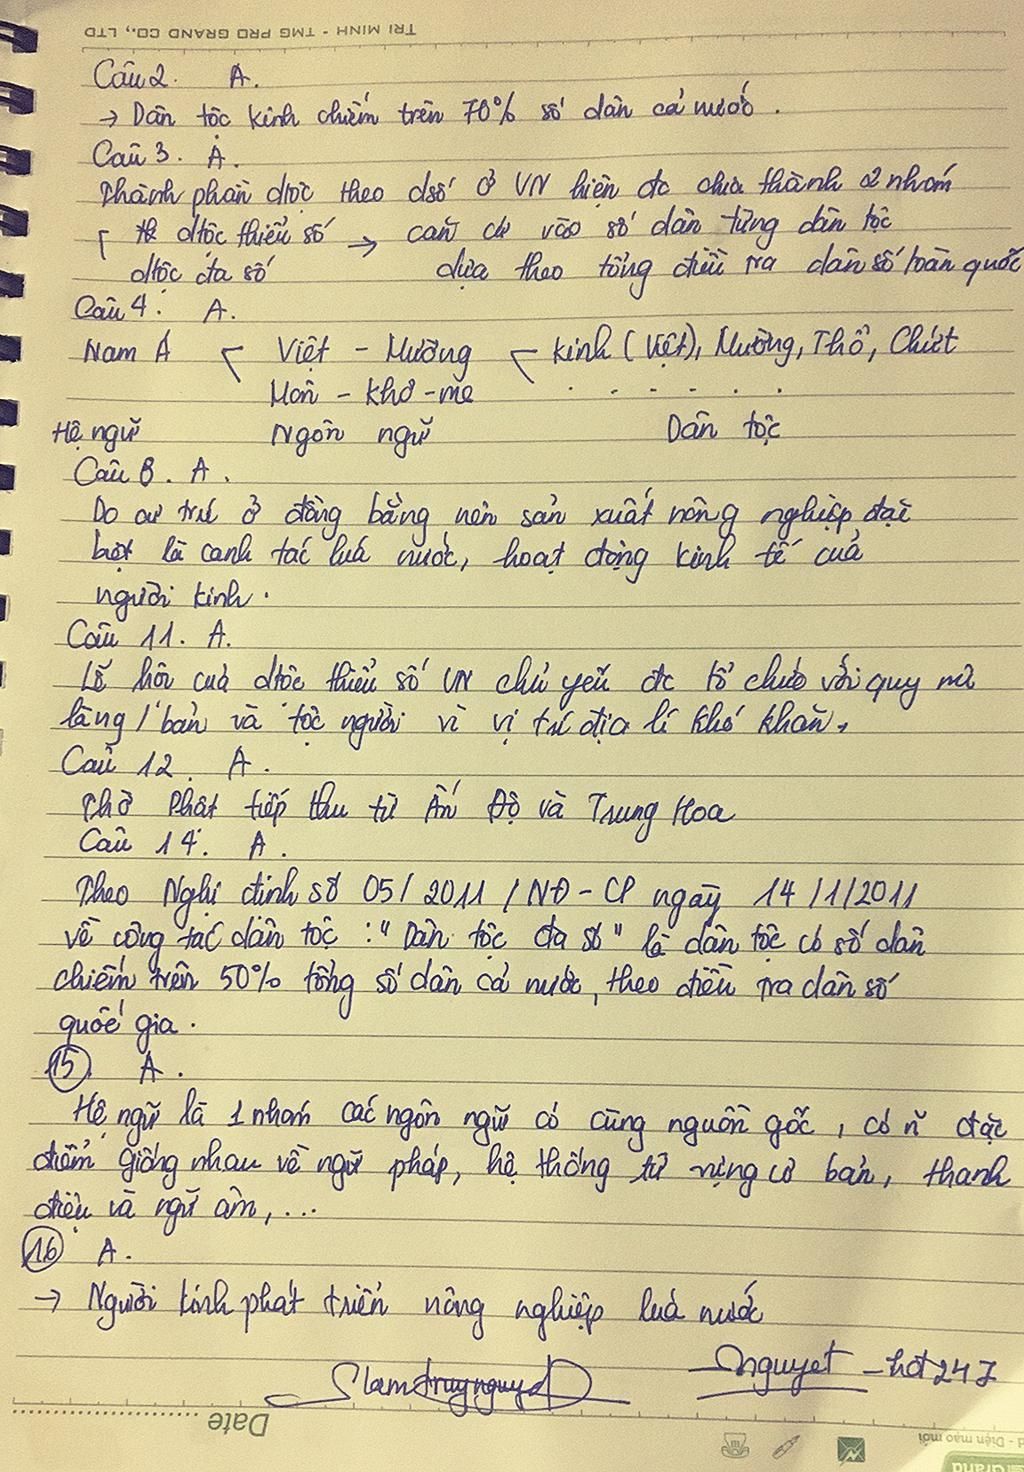 TRI MINH - TMG PRO GRAND CO., LTD
Câu 2. A.
→ Dân tộc kinh chiếm trên 70% số dân cả nước.
Câu 3. A.
Thành phần dtộc theo dsố ở VN hiện đc chia thành 2 nhóm
dtộc thiểu số → căn cứ vào số dân từng dân tộc
dtộc đa số dựa theo tổng điều tra dân số toàn quốc
Câu 4. A.
Nam Á Việt - Mường kinh (Việt), Mường, Thổ, Chứt
Môn - khơ-me . - - - . .
Hệ ngữ Ngôn ngữ Dân tộc
Câu 8. A.
Do cư trú ở đồng bằng nên sản xuất nông nghiệp đặc
biệt là canh tác lúa nước, hoạt động kinh tế của
người kinh.
Câu 11. A.
Lễ hội của dtộc thiểu số VN chủ yếu đc tổ chức với quy mô
làng / bản và tộc người vì vị trí địa lí khó khăn.
Câu 12. A.
Thờ Phật tiếp thu từ Ấn Độ và Trung Hoa
Câu 14. A.
Theo Nghị định số 05/2011/NĐ-CP ngày 14/1/2011
về công tác dân tộc: "Dân tộc đa số" là dân tộc có số dân
chiếm trên 50% tổng số dân cả nước, theo điều tra dân số
quốc gia.
15. A.
Hệ ngữ là 1 nhóm các ngôn ngữ có cùng nguồn gốc, có n~ đặc
điểm giống nhau về ngữ pháp, hệ thống từ vựng cơ bản, thanh
điệu và ngữ âm,...
16 A.
→ Người kinh phát triển nông nghiệp lúa nước
nguyet - hđ247
Date
Diện mạo mới
Grand